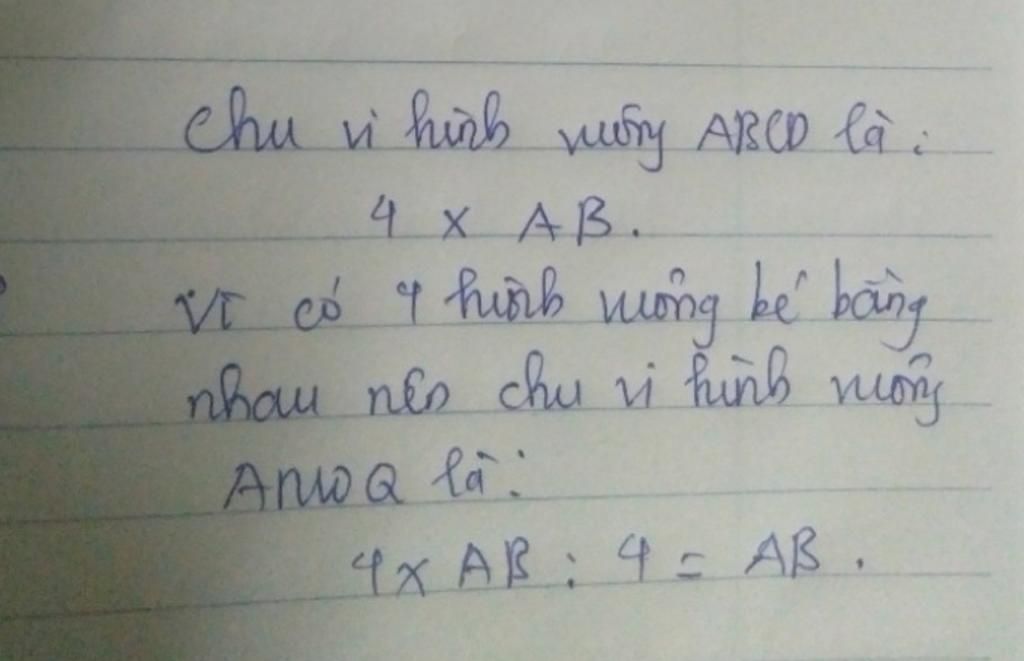 Chu vi hình vuông ABCD là:
4 x AB.
Vì có 4 hình vuông bé bằng
nhau nên chu vi hình vuông
AMOQ là:
4 x AB : 4 = AB.